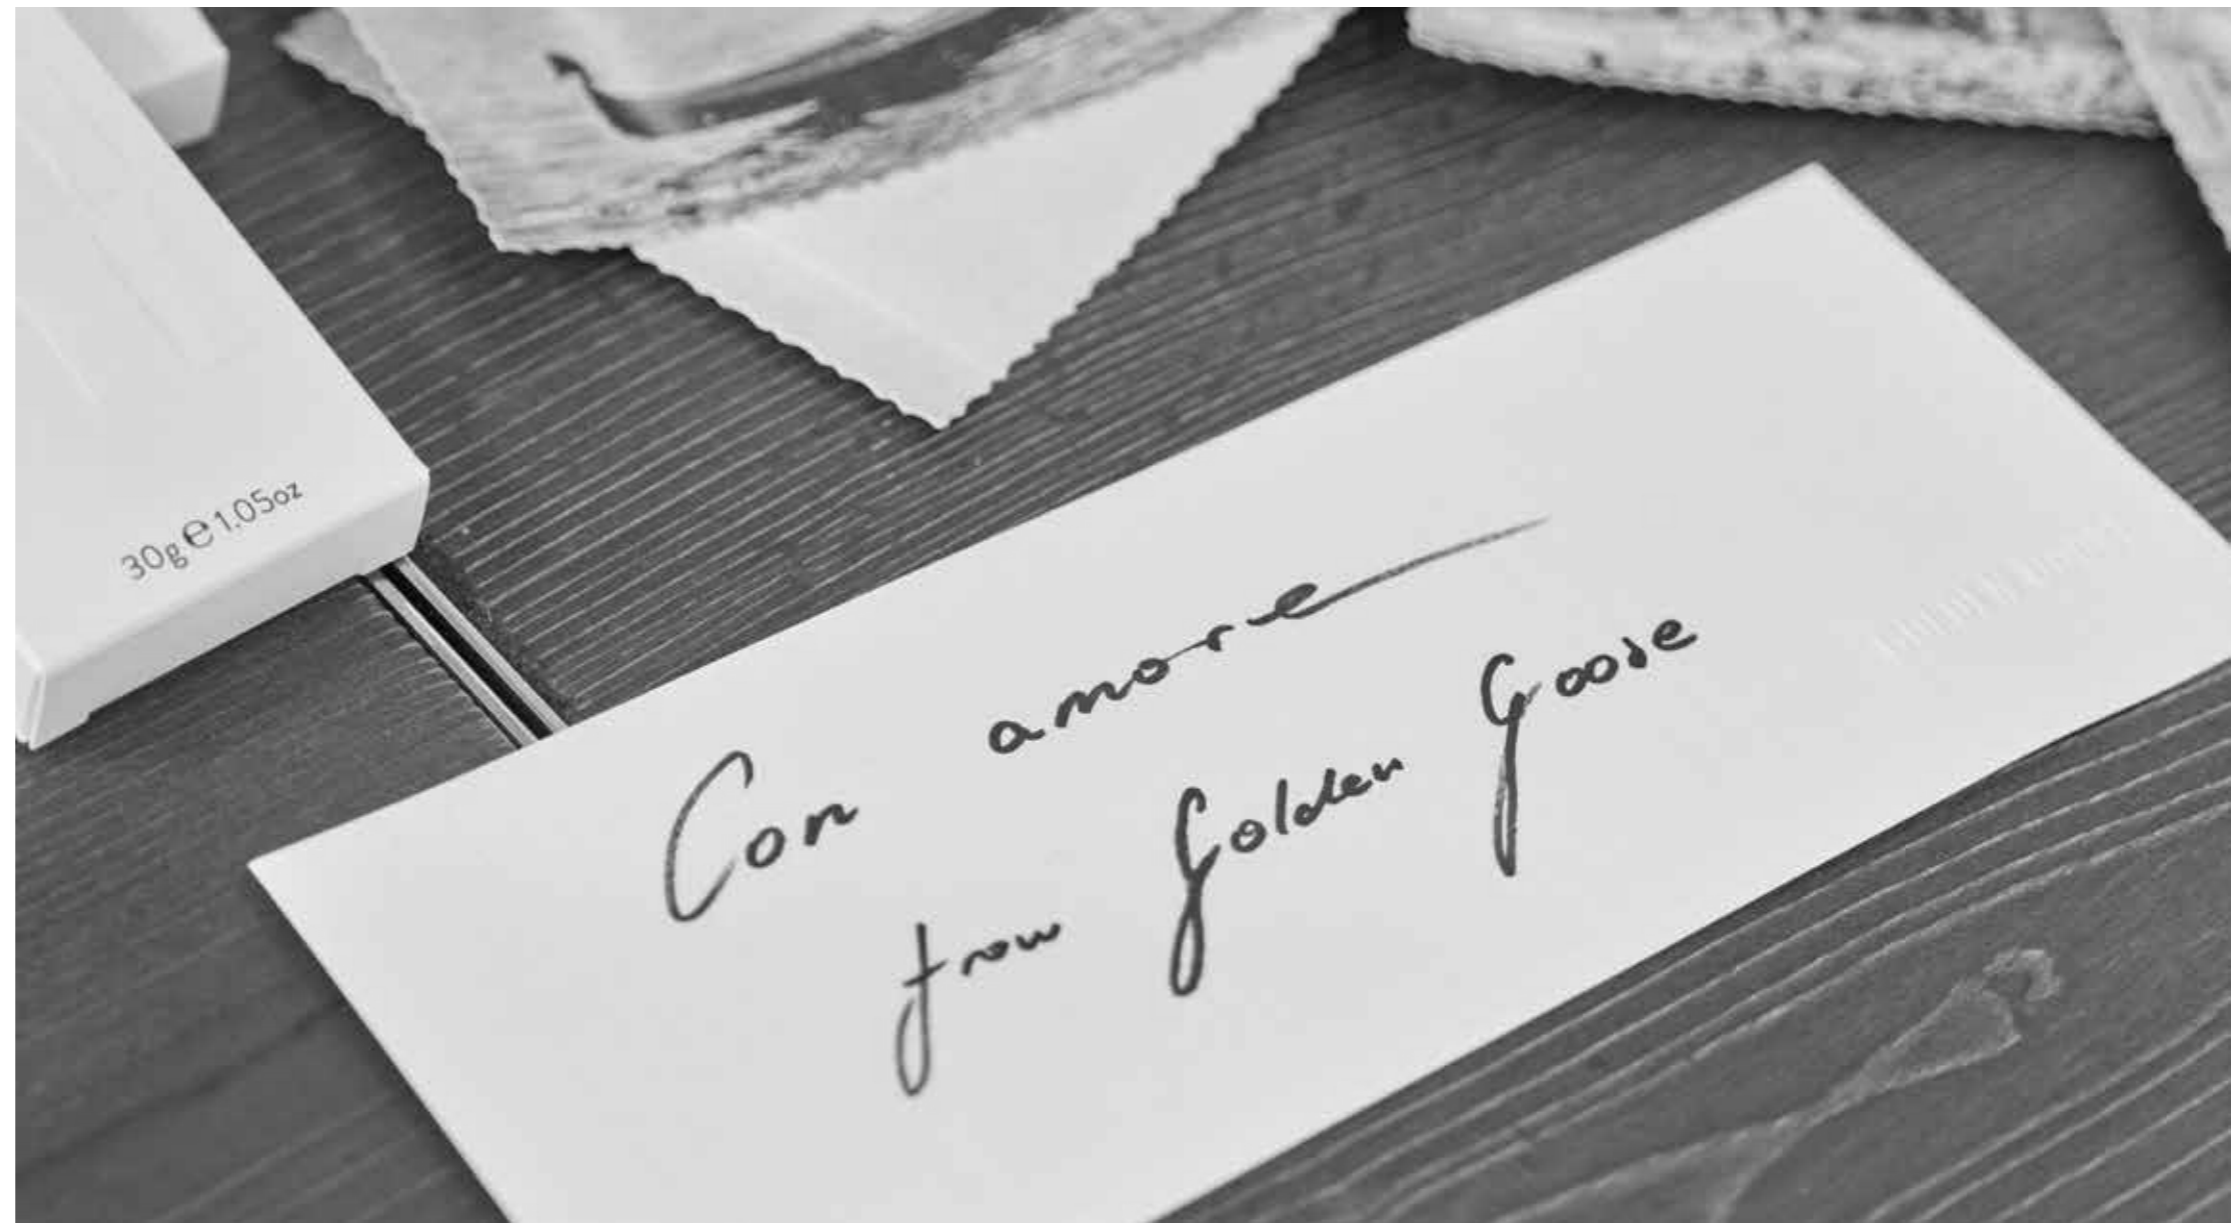 30g ℮ 1.05oz
Con amore
from Golden Goose